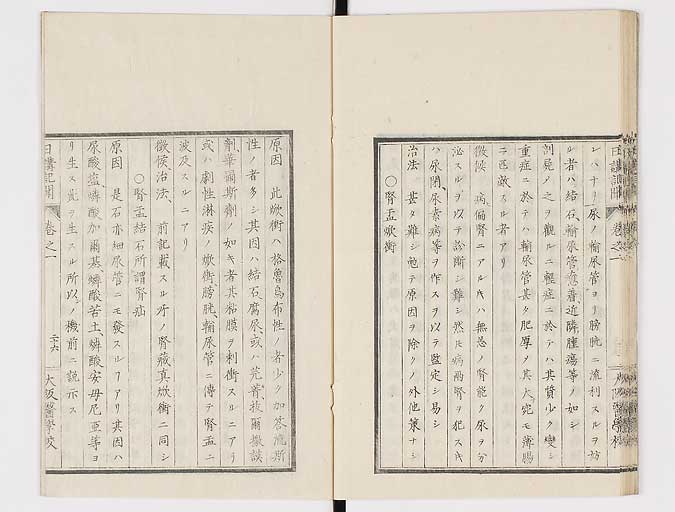 シハナリ尿ノ輸尿管ヨリ膀胱ニ流利スルヲ妨
ル者ハ結石、輸尿管愈着、近隣腫瘍等ノ如シ
剖見ノ之ヲ觀ルニ輕症ニ於テハ其質少ク變シ
重症ニ於テハ輸尿管甚タ肥厚ヲ其大宛モ薄腸
ニ匹敵スル者アリ
徴候 病偏腎ニアル片ハ無恙ノ腎能ク尿ヲ分
泌スルヲ以テ診斷シ難シ然圧病兩腎ヲ犯ス片
ハ尿閉、尿素病等ヲ作スヲ以テ鑒定シ易シ
治法 甚タ難シ勉テ原因ヲ除クノ外他策ナシ
○腎盂焮衝
日講記聞 卷之一 大阪醫學校
原因 此焮衝ハ格魯烏布性ノ者少ク加答流斯
性ノ者多シ其因ハ結石、腐尿、或ハ芫菁、拔爾撒謨
劑、華爾斯劑ノ如キ者其粘膜ヲ刺衝スルニアリ
或ハ劇性淋疾ノ焮衝、膀胱、輸尿管ニ傳テ腎盂ニ
波及スルニアリ
徴候、治法、 前記載スル所ノ腎藏真焮衝ニ同シ
○腎盂結石所謂腎疝
原因 是石亦細尿管ニモ發スルフアリ其因ハ
尿酸鹽、燐酸加爾基、燐酸苦土、燐酸安母尼亞等ヨ
リ生ス此ヲ生スル所以ノ機前ニ説示ス
日講記聞 卷之一 二十六 大阪醫學校